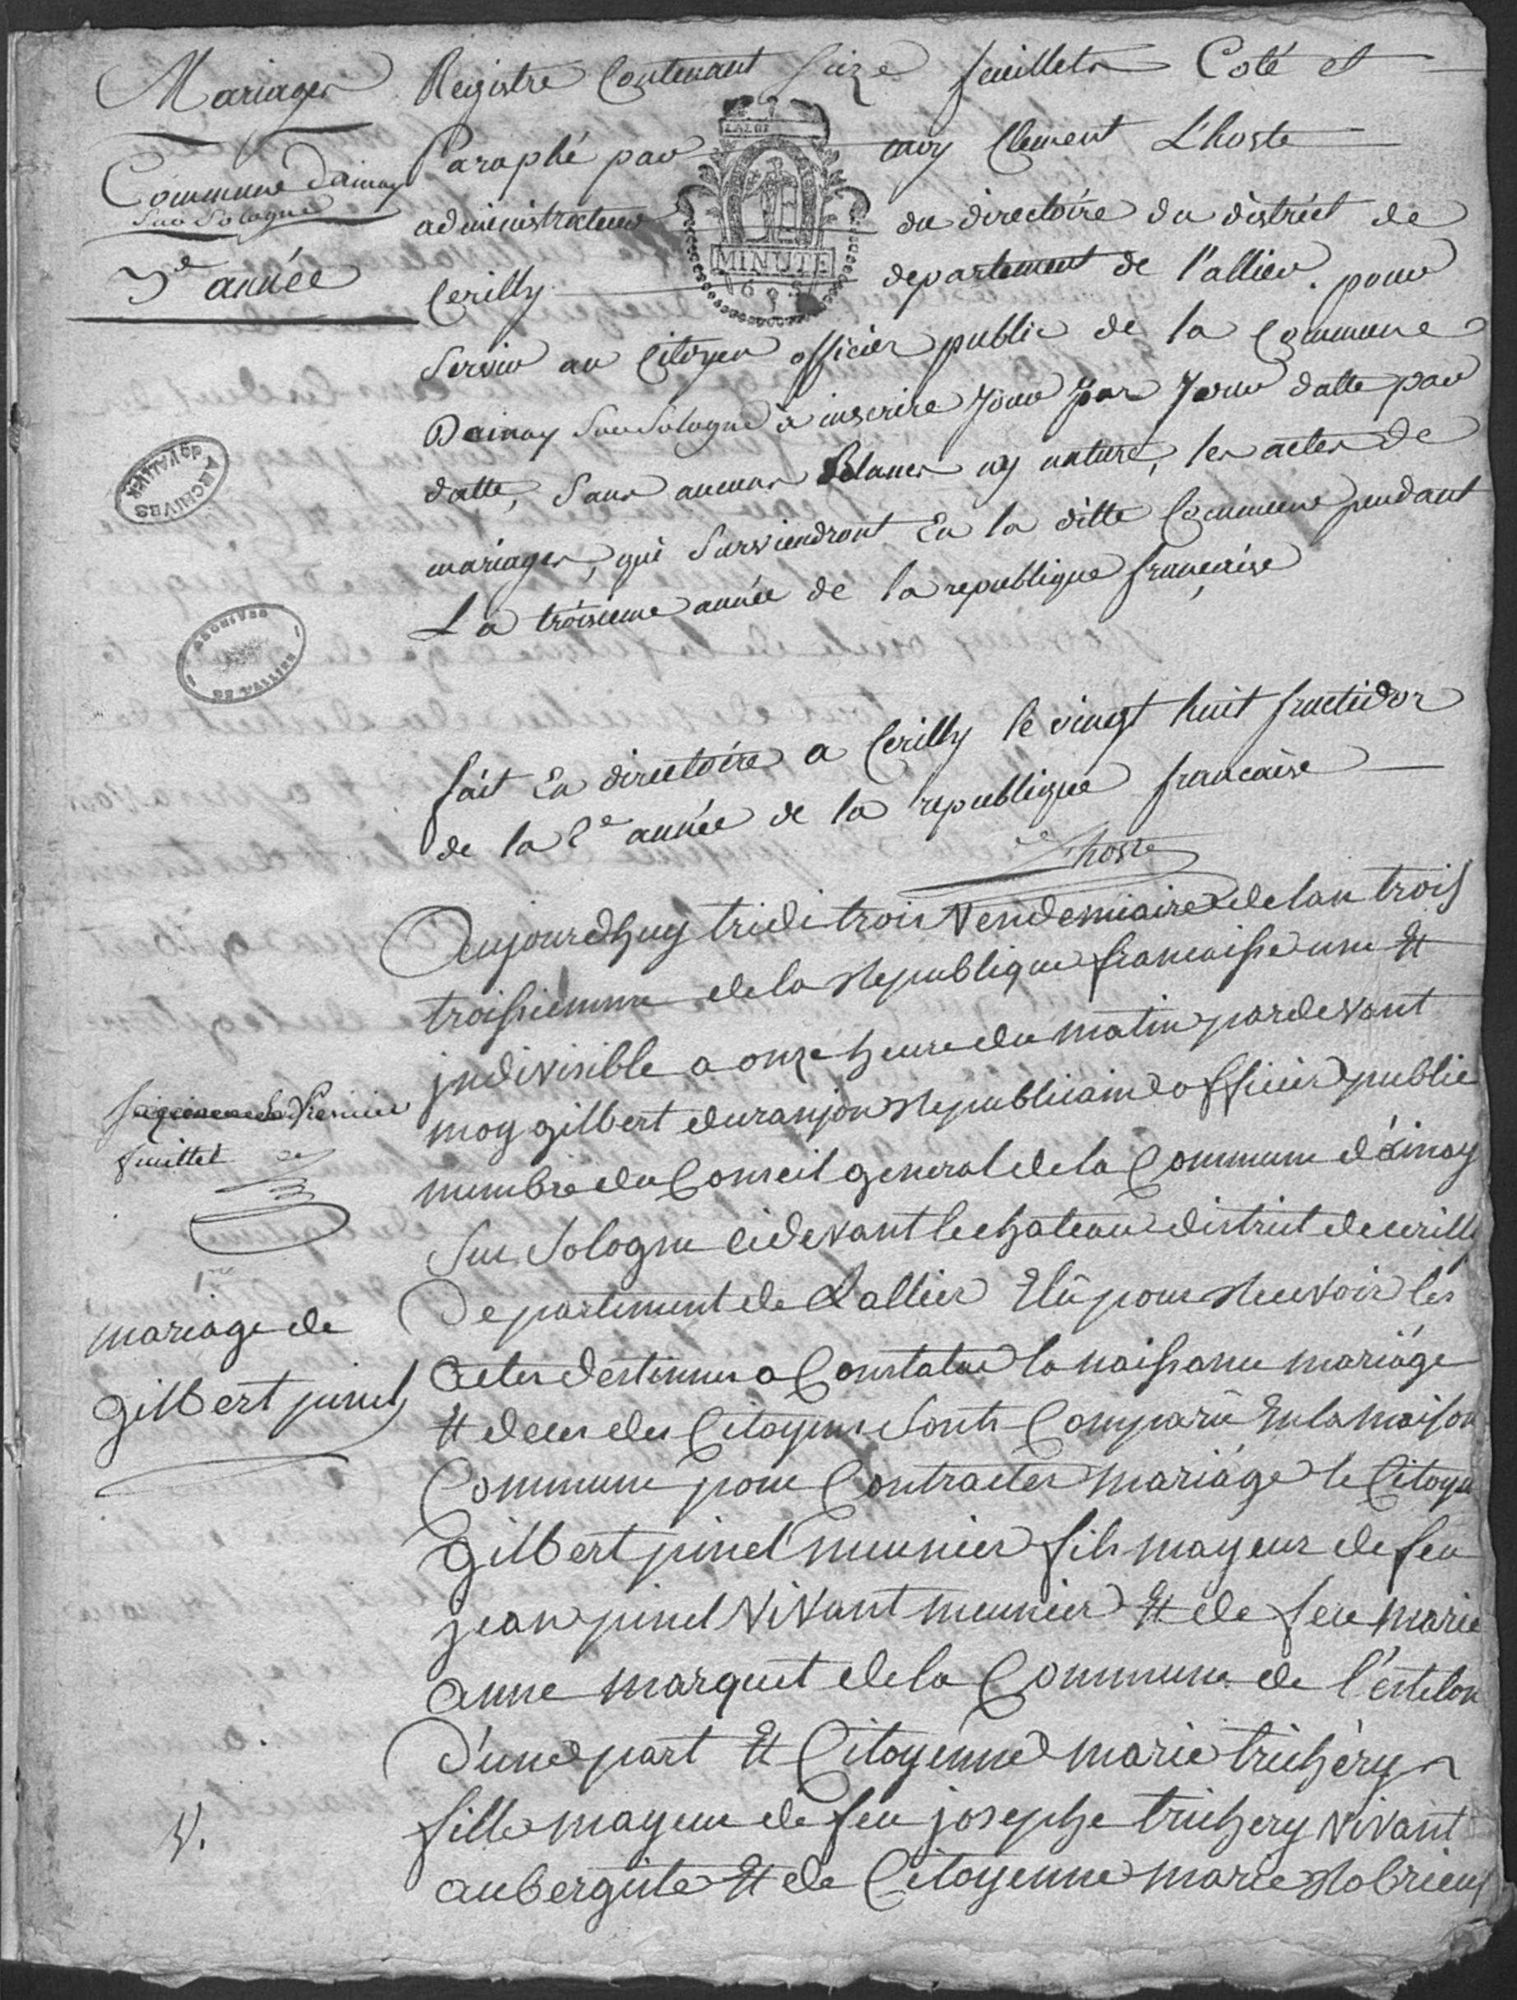 Mariages
Commune dainay
sur Sologne
3e année
Registre Contenant seize feuillets Coté et
Paraphé par moy Clement L'hoste
administrateur du directoire du district de
Cerilly departement de l'allier. pour
servir au Citoyen officier public de la Commune
Dainay sur Sologne a inscrire jour par jour datte par
datte, sans aucuns blancs ny nature, les actes de
mariages, qui surviendront En la ditte Commune pendant
La troisieme année de la republique française
LA LOI
MINUTE
ARCHIVES
DE L'ALLIER
ARCHIVES
DE L'ALLIER
fait En directoire a Cerilly le vingt huit fructidor
de la 2e année de la republique francaise
Lhoste
Aujourdhuy tridi trois Vendemiaire de lan trois
troisiemme de la Republique francaisse une Et
jndivisible a onze heure du matin pardevant
moy gilbert duranjon Republicain officier public
membre du Conseil general de la Commune d'ainay
sur Sologne cidevant le chateau district de cerilly
Departement de Lallier Elû pour Recevoir les
actes destinnes a Constater la naissance mariáge
Et deces des Citoyens sonts Comparû En la maison
Commune pour Contracter mariáge le Citoyen
gilbert pinel meunier fils mayeur de feu
jean pinel Vivant meunier Et de feu marie
anne marquet de la Commune de l'etelon
D'une part Et Citoyenne marie trichéry
fille mayeur de feu josephe trichery Vivant
aubergiste Et de Citoyenne marie
premier
feuillet
1re
mariage de
gilbert pinel
V.